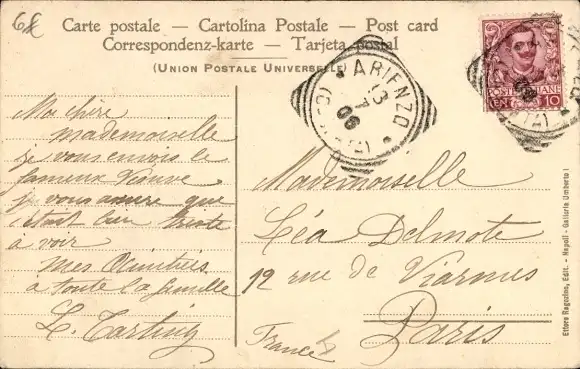 6f
Carte postale — Cartolina Postale — Post card
Correspondenz-karte — Tarjeta postal
(UNION POSTALE UNIVERSELLE)
POSTE ITALIANE
CEN 10
ARIENZO
13
7
06
(CASERTA)
Ma chère
Mademoiselle
je vous envois le
fameux Vésuve
je vous assure que
c'était bien triste
a voir
mes Amitiés
a toute la famille
L. Tarting
Mademoiselle
Léa Delmote
12 rue de Viarmes
Paris
France
Ettore Ragozino, Edit. - Napoli - Galleria Umberto I